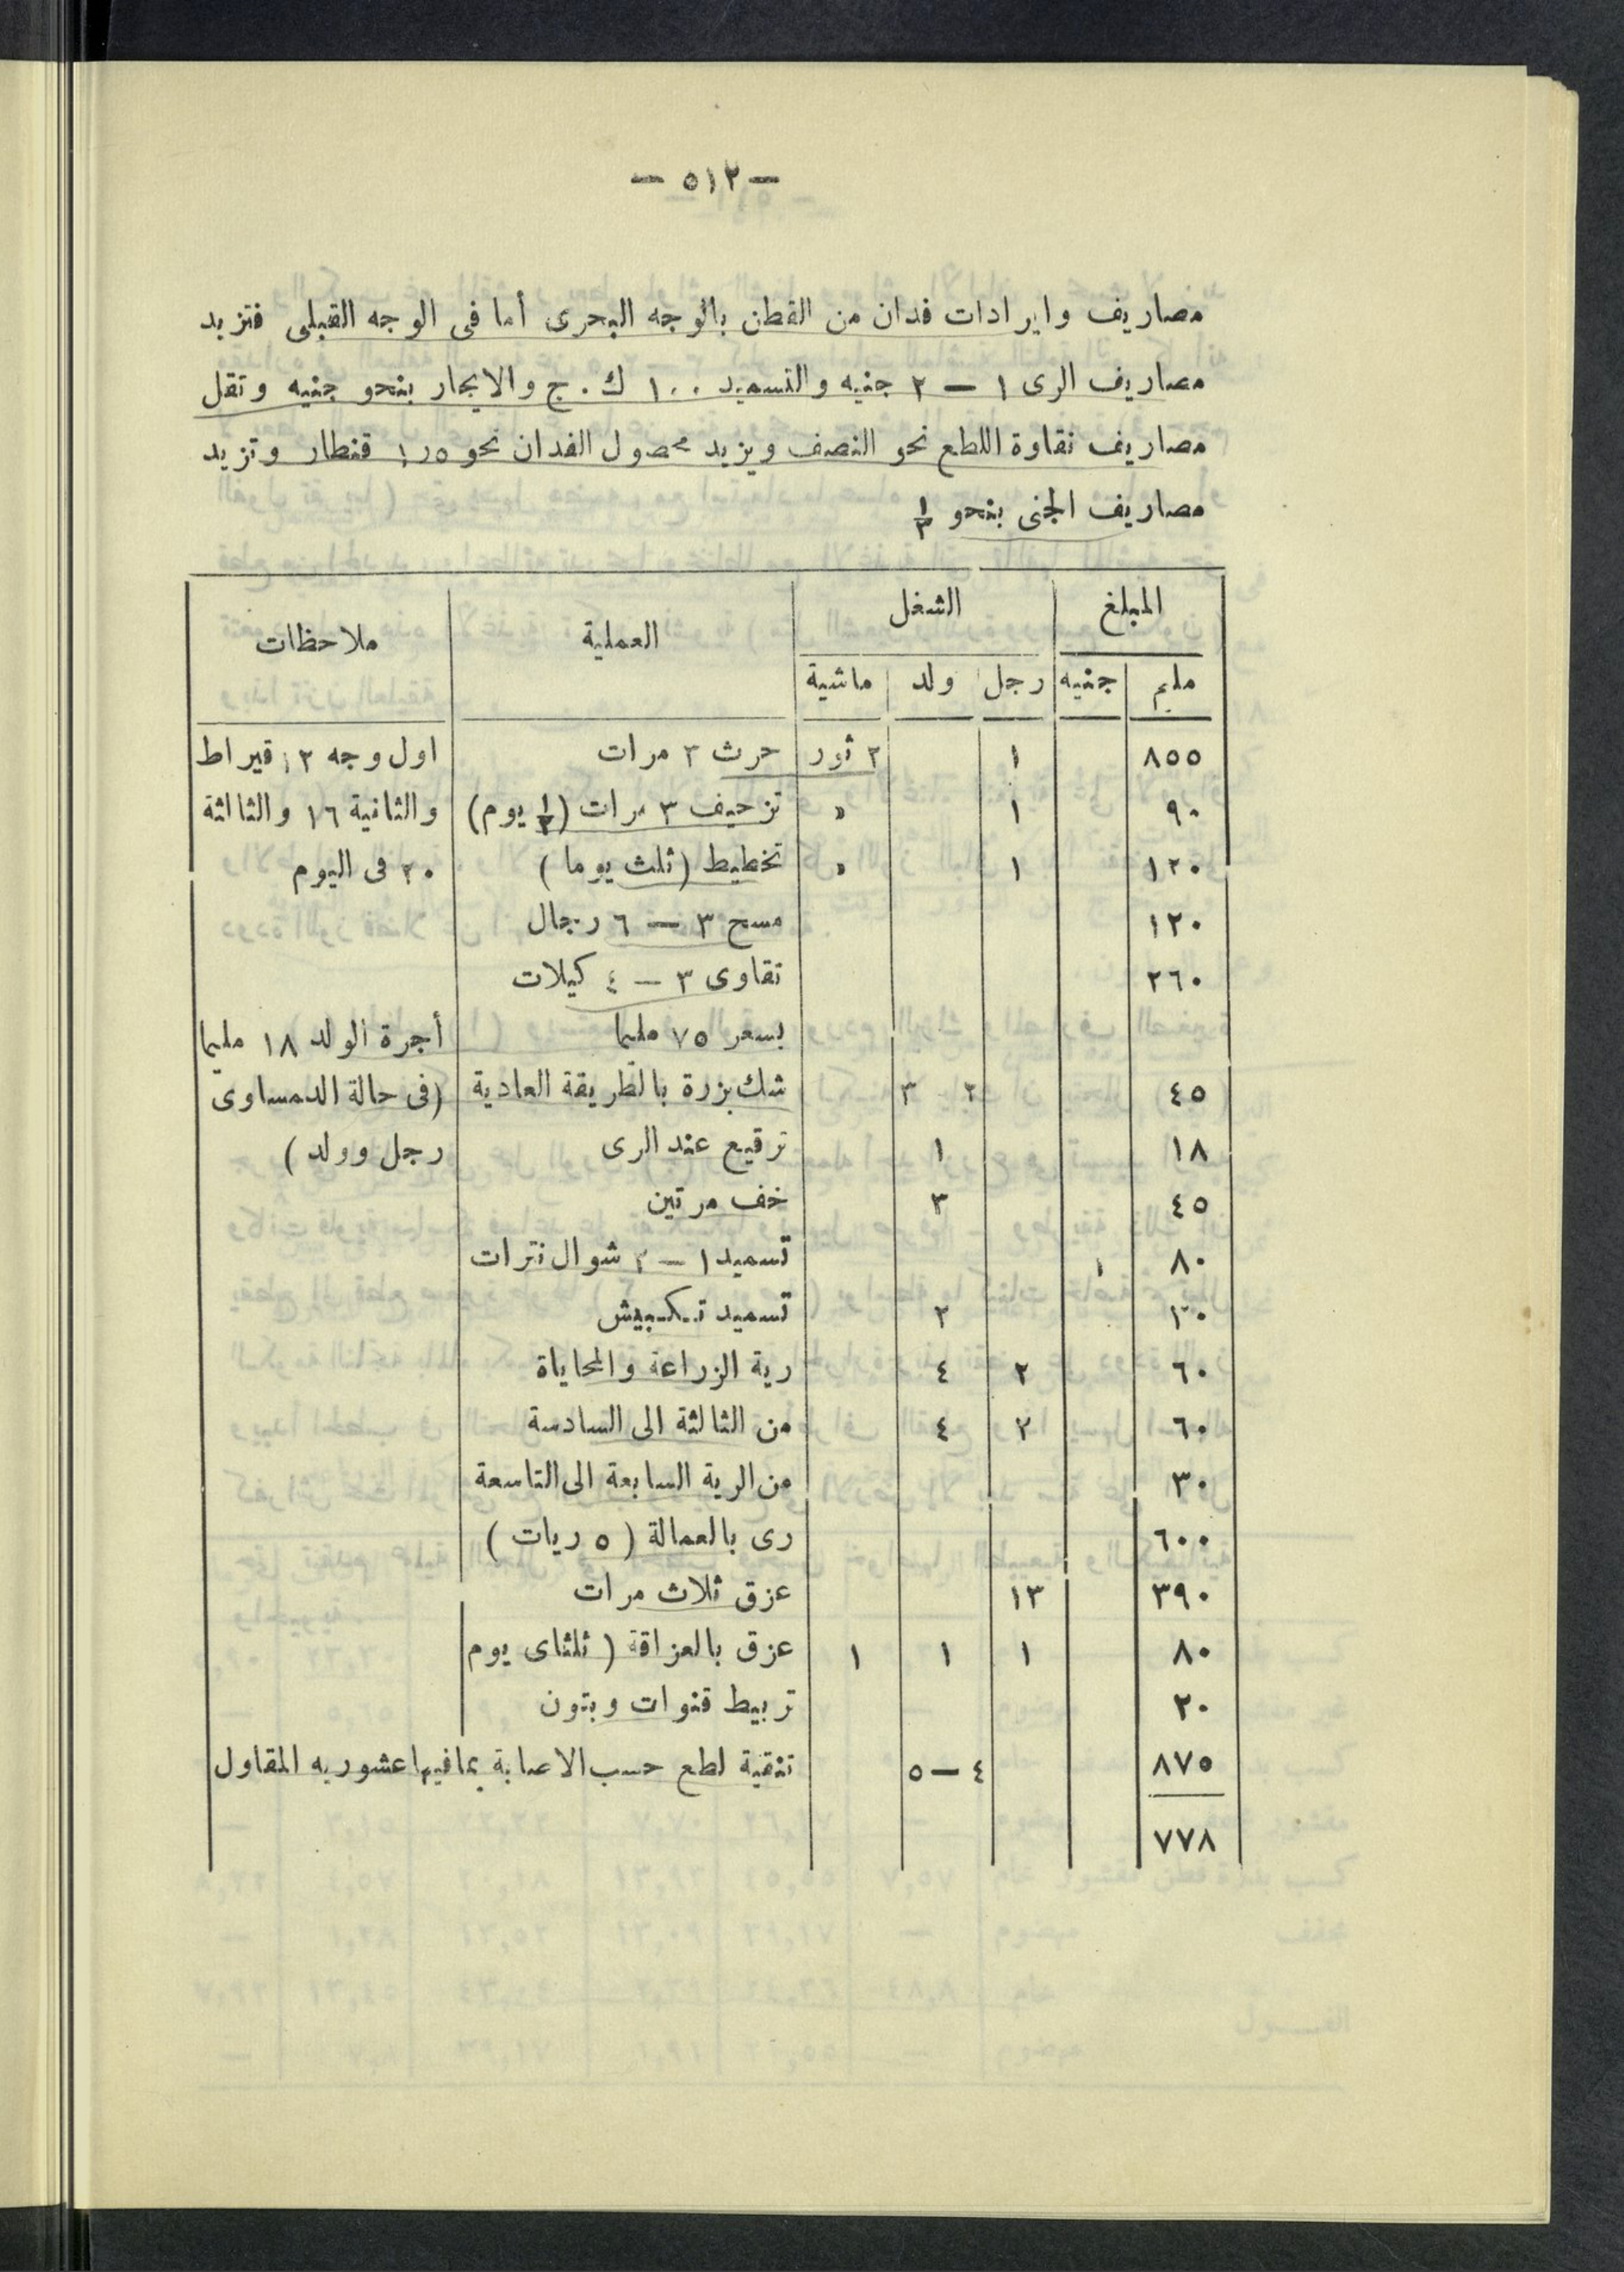 — ٥١٢ —
مصاريف وايرادات فدان من القطن بالوجه البحرى أما فى الوجه القبلى فتزيد
مصاريف الرى ١ — ٢ جنيه والتسميد ١٠٠ ك . ج والايجار بنحو جنيه وتقل
مصاريف نقاوة اللطع نحو النصف ويزيد محصول الفدان نحو ٥ر١ قنطار وتزيد
مصاريف الجنى بنحو ١/٣
المبلغ الشغل العملية ملاحظات
مليم جنيه رجل ولد ماشية
٨٥٥ ١ ٢ ثور حرث ٣ مرات اول وجه ١٢ قيراط
٩٠ ١ » تزحيف ٣ مرات (١/٢ يوم) والثانية ١٦ والثالثة
١٢٠ ١ » تخطيط (ثلث يوما) ٢٠ فى اليوم
١٢٠ مسح ٣ — ٦ رجال
٢٦٠ تقاوى ٣ — ٤ كيلات
بسعر ٧٥ مليما أجرة الولد ١٨ مليما
٤٥ ٢ ٣ شك بزرة بالطريقة العادية (فى حالة الدمساوى
١٨ ١ ترقيع عند الرى رجل وولد)
٤٥ ٣ خف مرتين
٨٠ ١ تسميد ١ — ٢ شوال نترات
٢ تسميد تكبيش
٦٠ ٢ ٤ رية الزراعة والمحاياة
٦٠ ٢ ٤ من الثالثة الى السادسة
٣٠ من الرية السابعة الى التاسعة
٦٠٠ رى بالعمالة (٥ ريات)
٣٩٠ ١٣ عزق ثلاث مرات
٨٠ ١ ١ ١ عزق بالعزاقة (ثلثاى يوم
٢٠ تربيط قنوات وبتون
٨٧٥ ٤ — ٥ تنقية لطع حسب الاصابة بما فيها عشوريه المقاول
٧٧٨